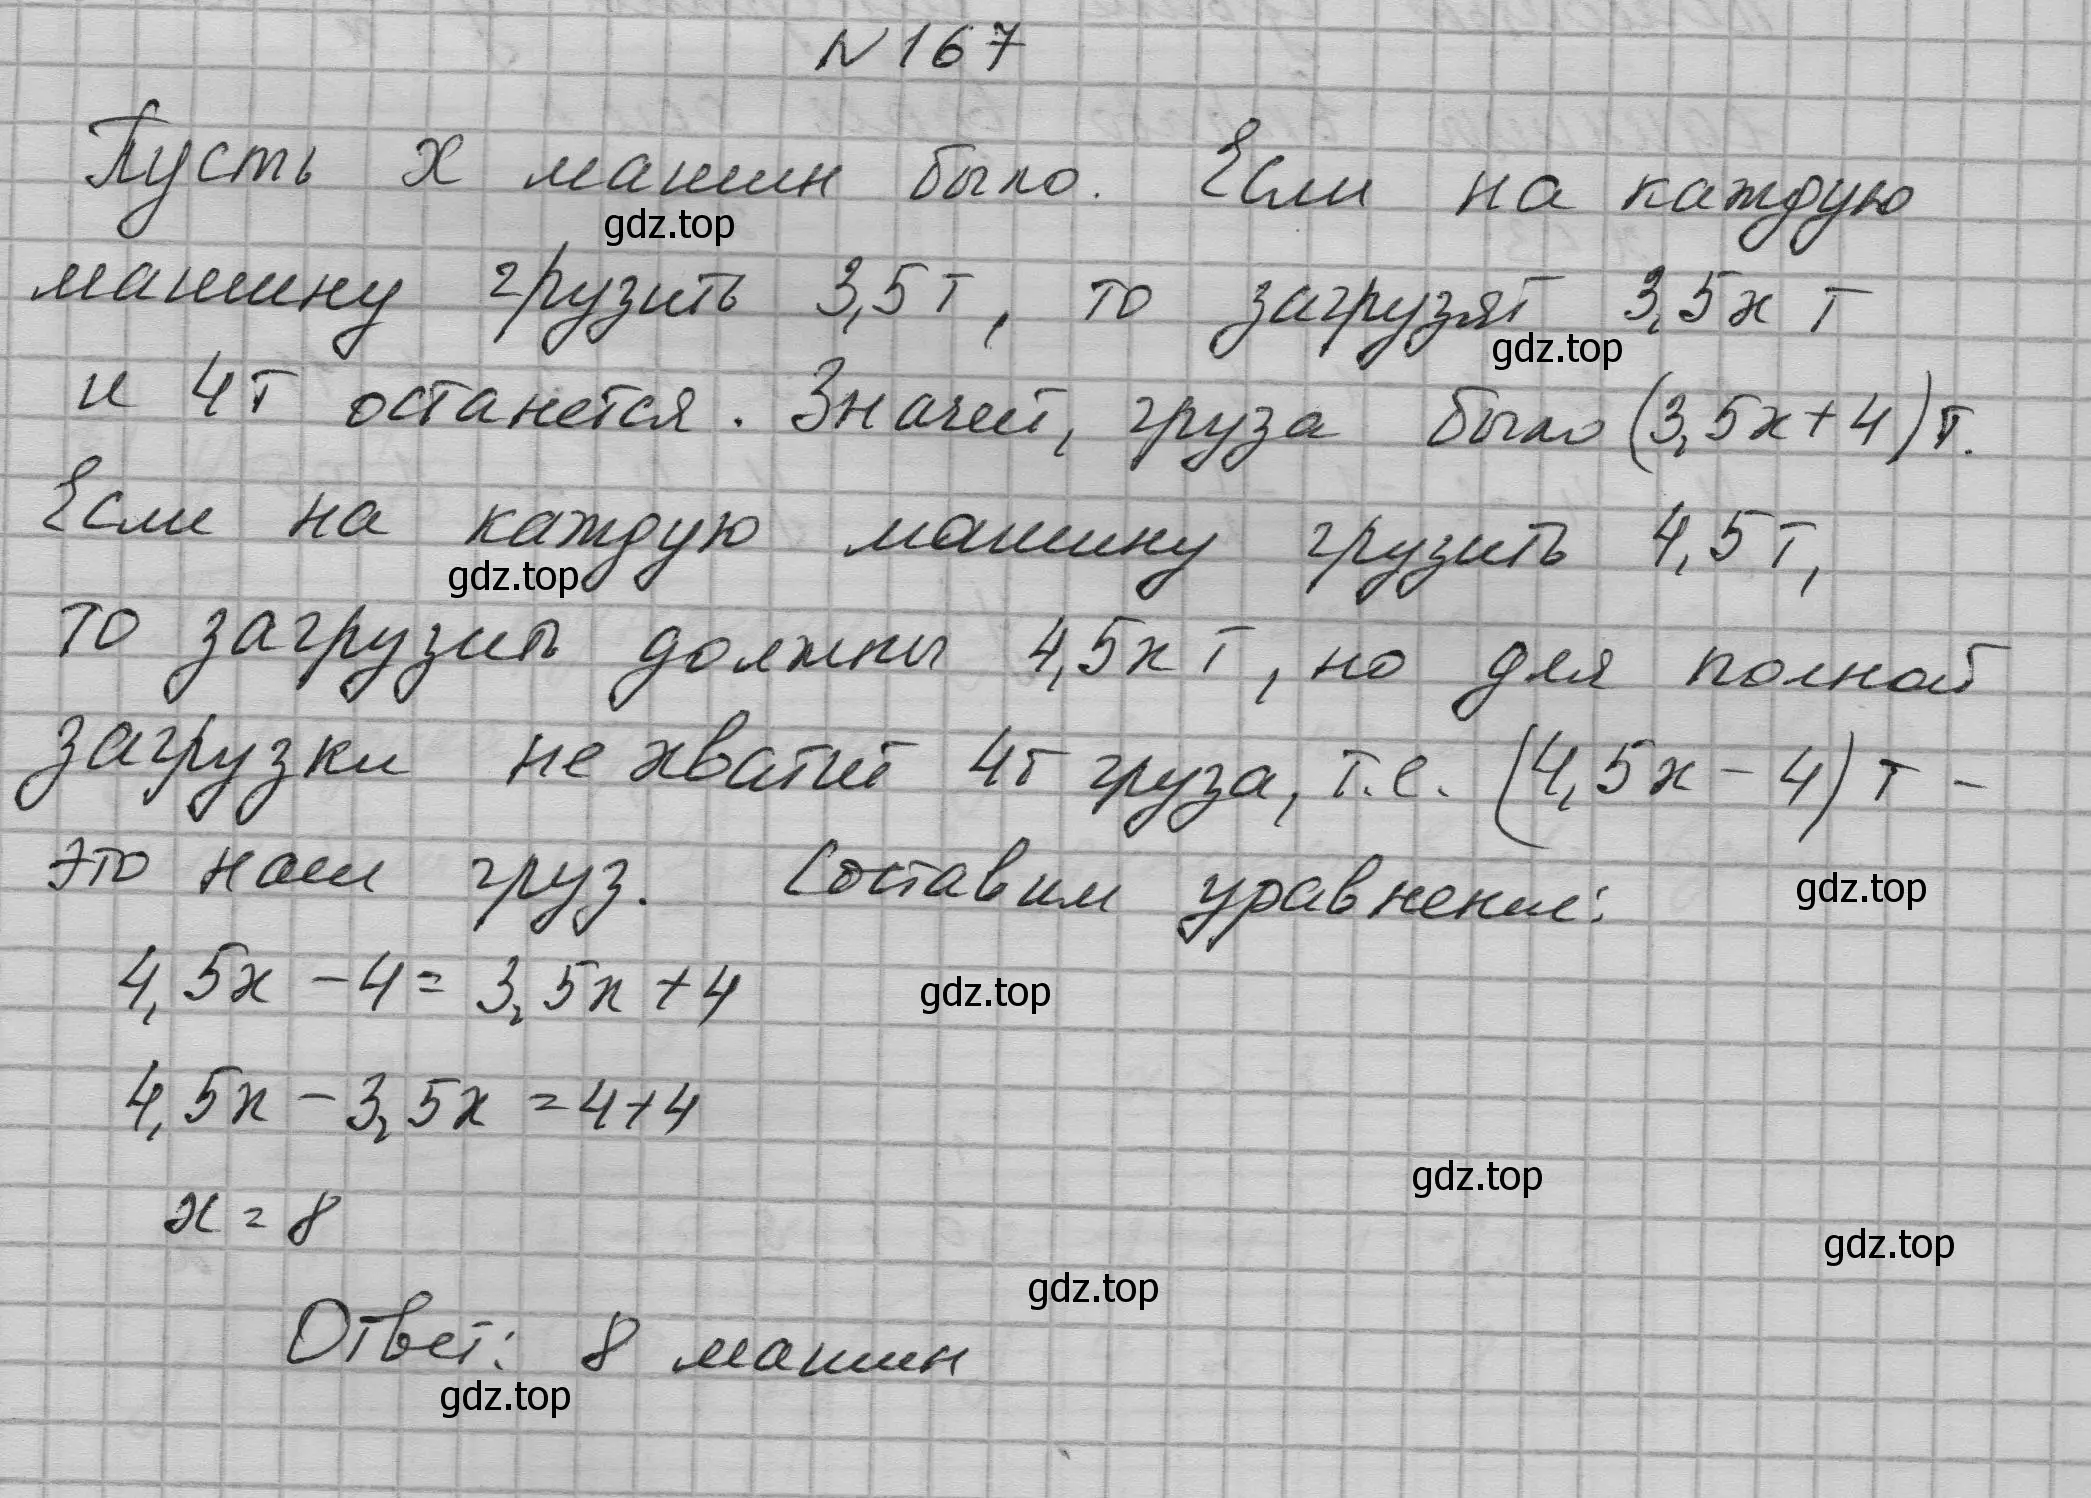 N 167
Пусть х машин было. Если на каждую
gdz.top
машину грузить 3,5т, то загрузят 3,5х т
gdz.top
и 4т останется. Значит, груза было (3,5х+4)т.
Если на каждую машину грузить 4,5т,
gdz.top
то загрузить должны 4,5х т, но для полной
загрузки не хватит 4т груза, т.е. (4,5х - 4) т -
это наш груз. Составим уравнение:
gdz.top
4,5х - 4 = 3,5х + 4
gdz.top
4,5х - 3,5х = 4+4
gdz.top
х = 8
gdz.top
gdz.top
Ответ: 8 машин
gdz.top